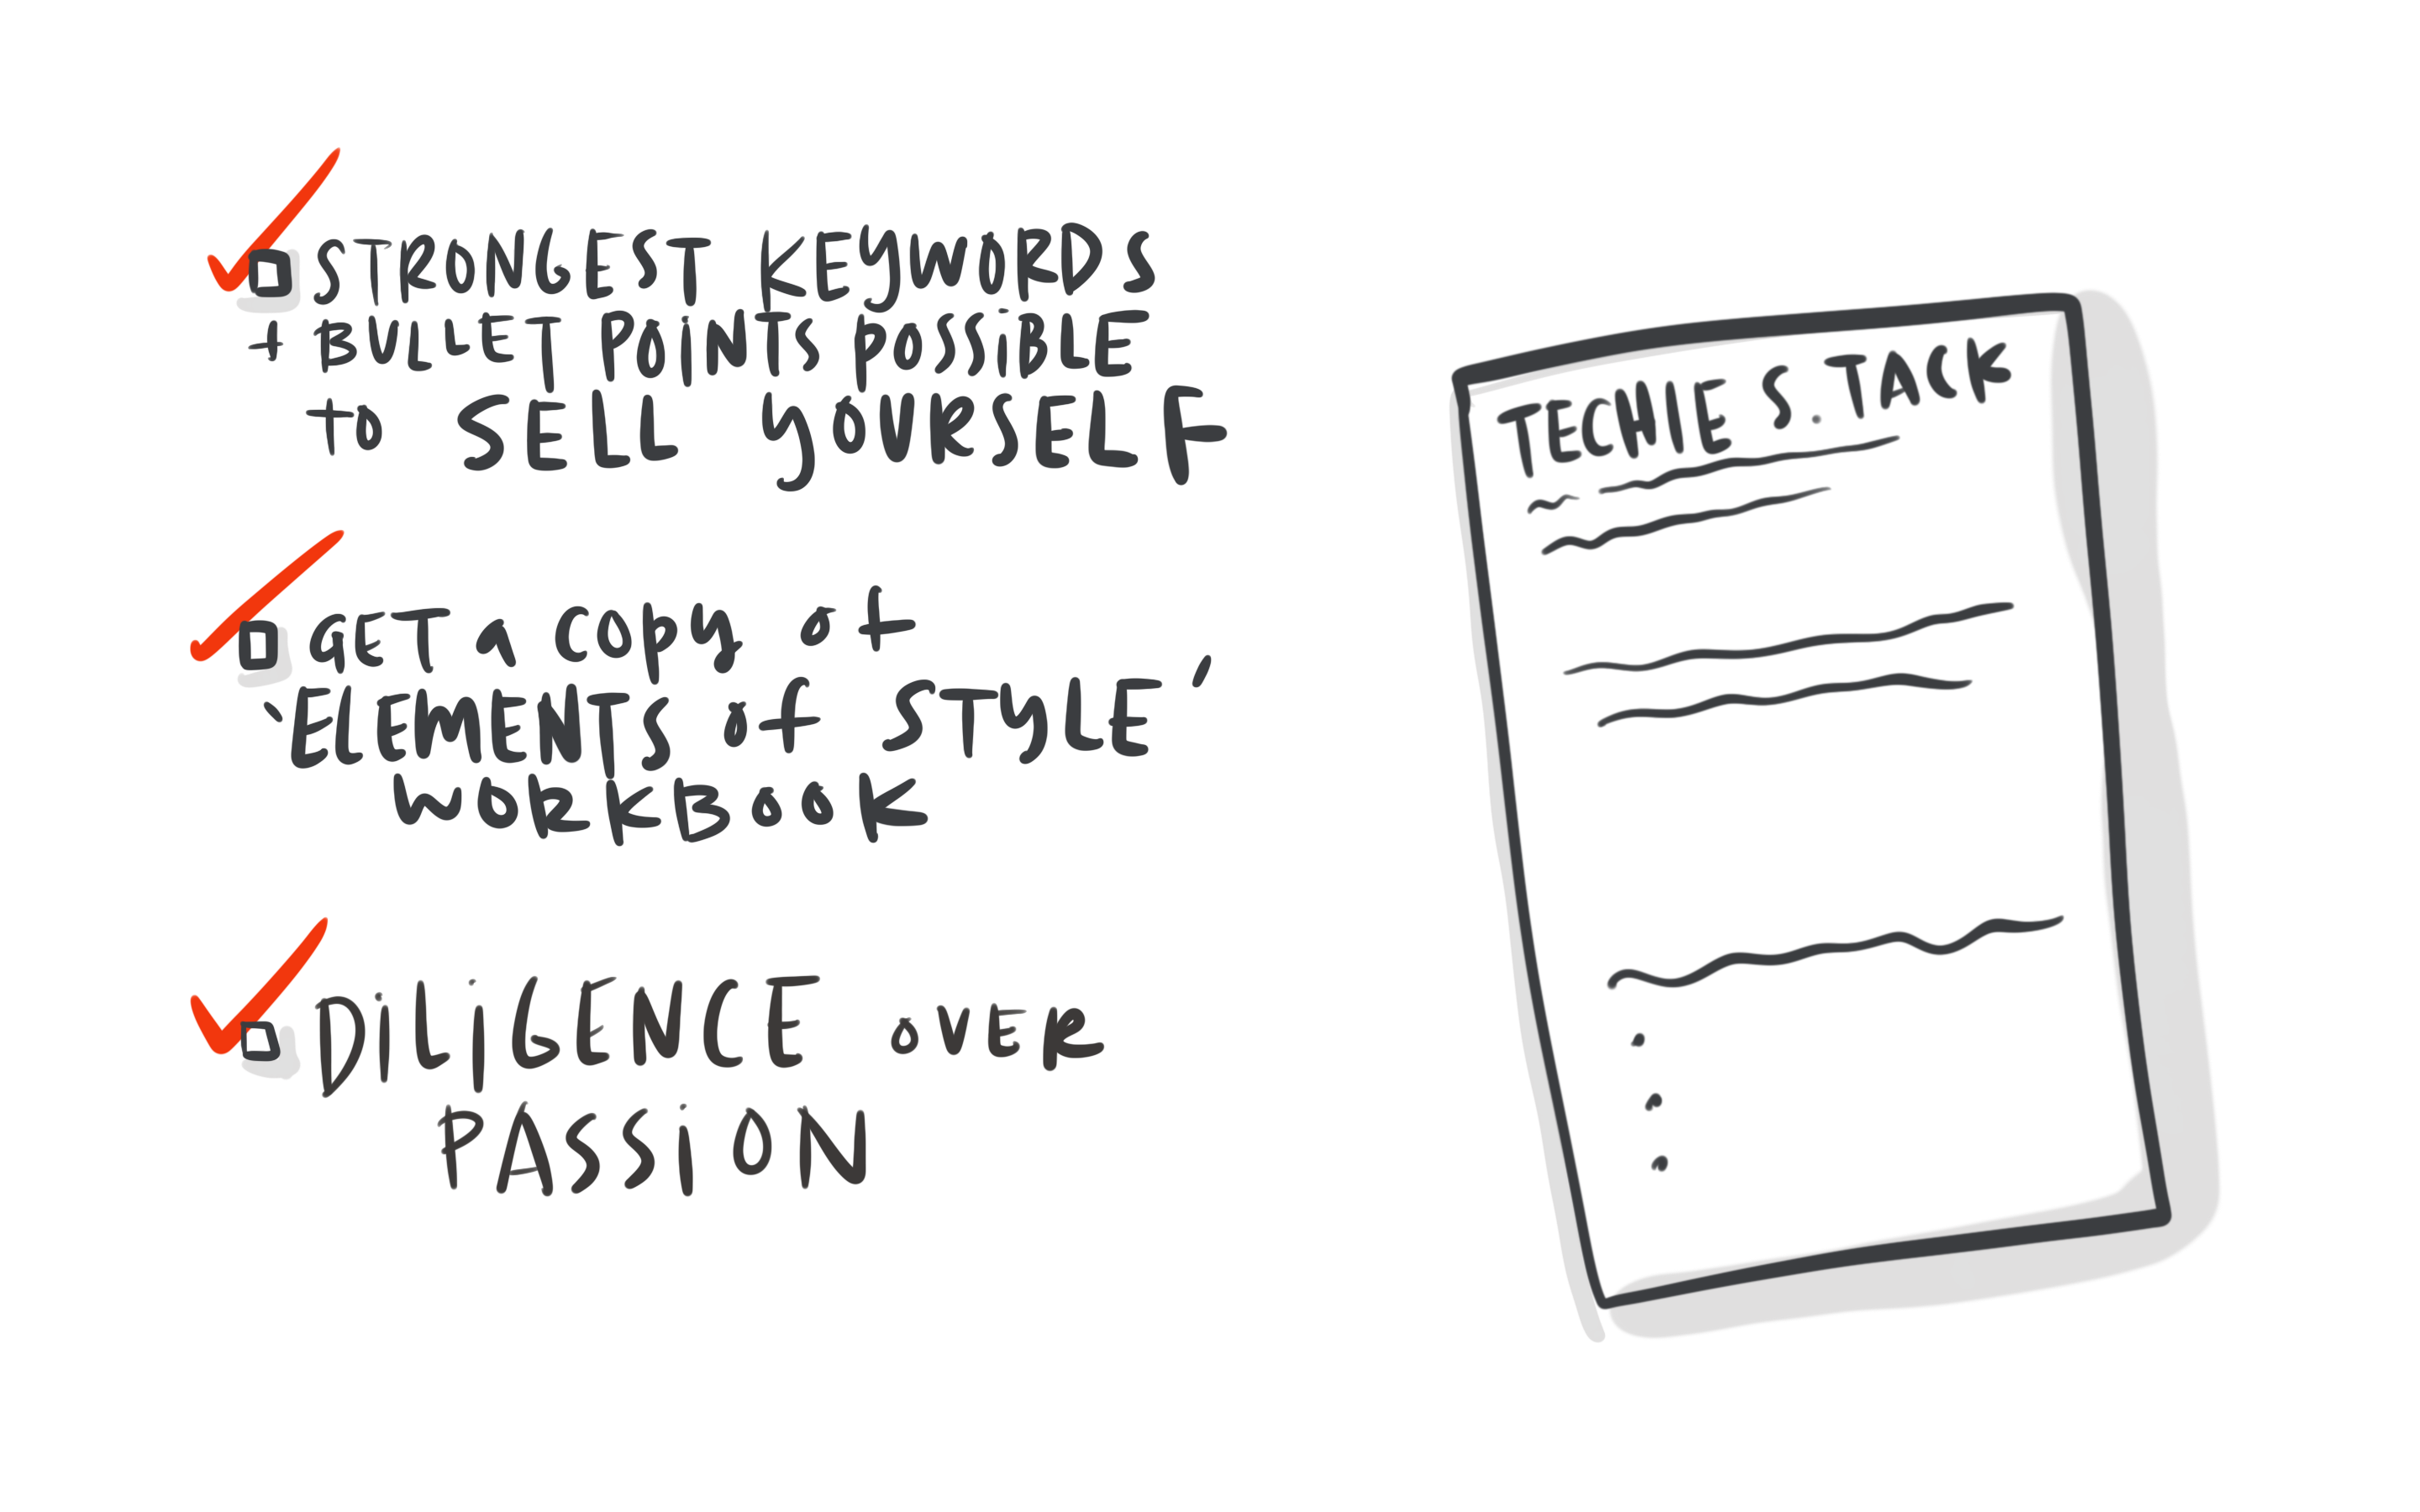 STRONGEST KEYWORDS
+ BULLET POINTS POSSIBLE
to SELL YOURSELF
GET a copy of
'ELEMENTS of STYLE'
WORKBOOK
DILIGENCE OVER
PASSION
TECHIE S. TACK